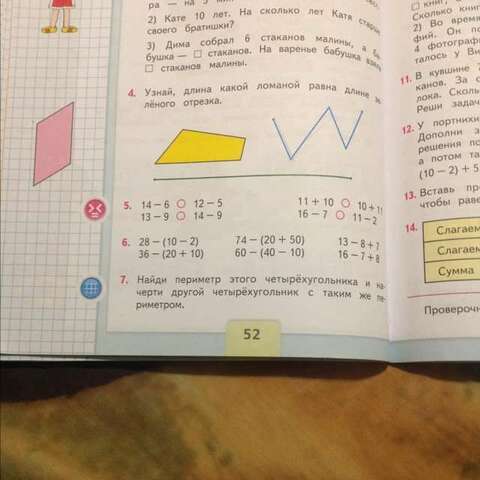 ра — на 5 мин
2) Кате 10 лет. На сколько лет Катя старше
своего братишки?
3) Дима собрал 6 стаканов малины, а ба-
бушка — □ стаканов. На варенье бабушка взяла
□ стаканов малины.
4. Узнай, длина какой ломаной равна длине зе-
лёного отрезка.
5. 14 – 6 ○ 12 – 5 11 + 10 ○ 10 + 11
13 – 9 ○ 14 – 9 16 – 7 ○ 11 – 2
6. 28 – (10 – 2) 74 – (20 + 50) 13 – 8 + 7
36 – (20 + 10) 60 – (40 – 10) 16 – 7 + 8
7. Найди периметр этого четырёхугольника и на-
черти другой четырёхугольник с таким же пе-
риметром.
52
□ книг,
Сколько книг
2) Во время
фий. Он по
4 фотограф
талось у Ви
11. В кувшине 
канов. За о
лока. Сколь
Реши задач
12. У портнихи
Дополни з
решения по
а потом та
(10 – 2) + 5
13. Вставь пр
чтобы раве
14.
Слагаем
Слагаем
Сумма
Проверочн